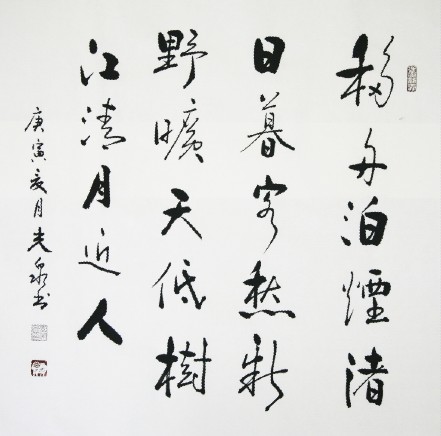 移舟泊煙渚
日暮客愁新
野曠天低樹
江清月近人
庚寅夏月光泉书